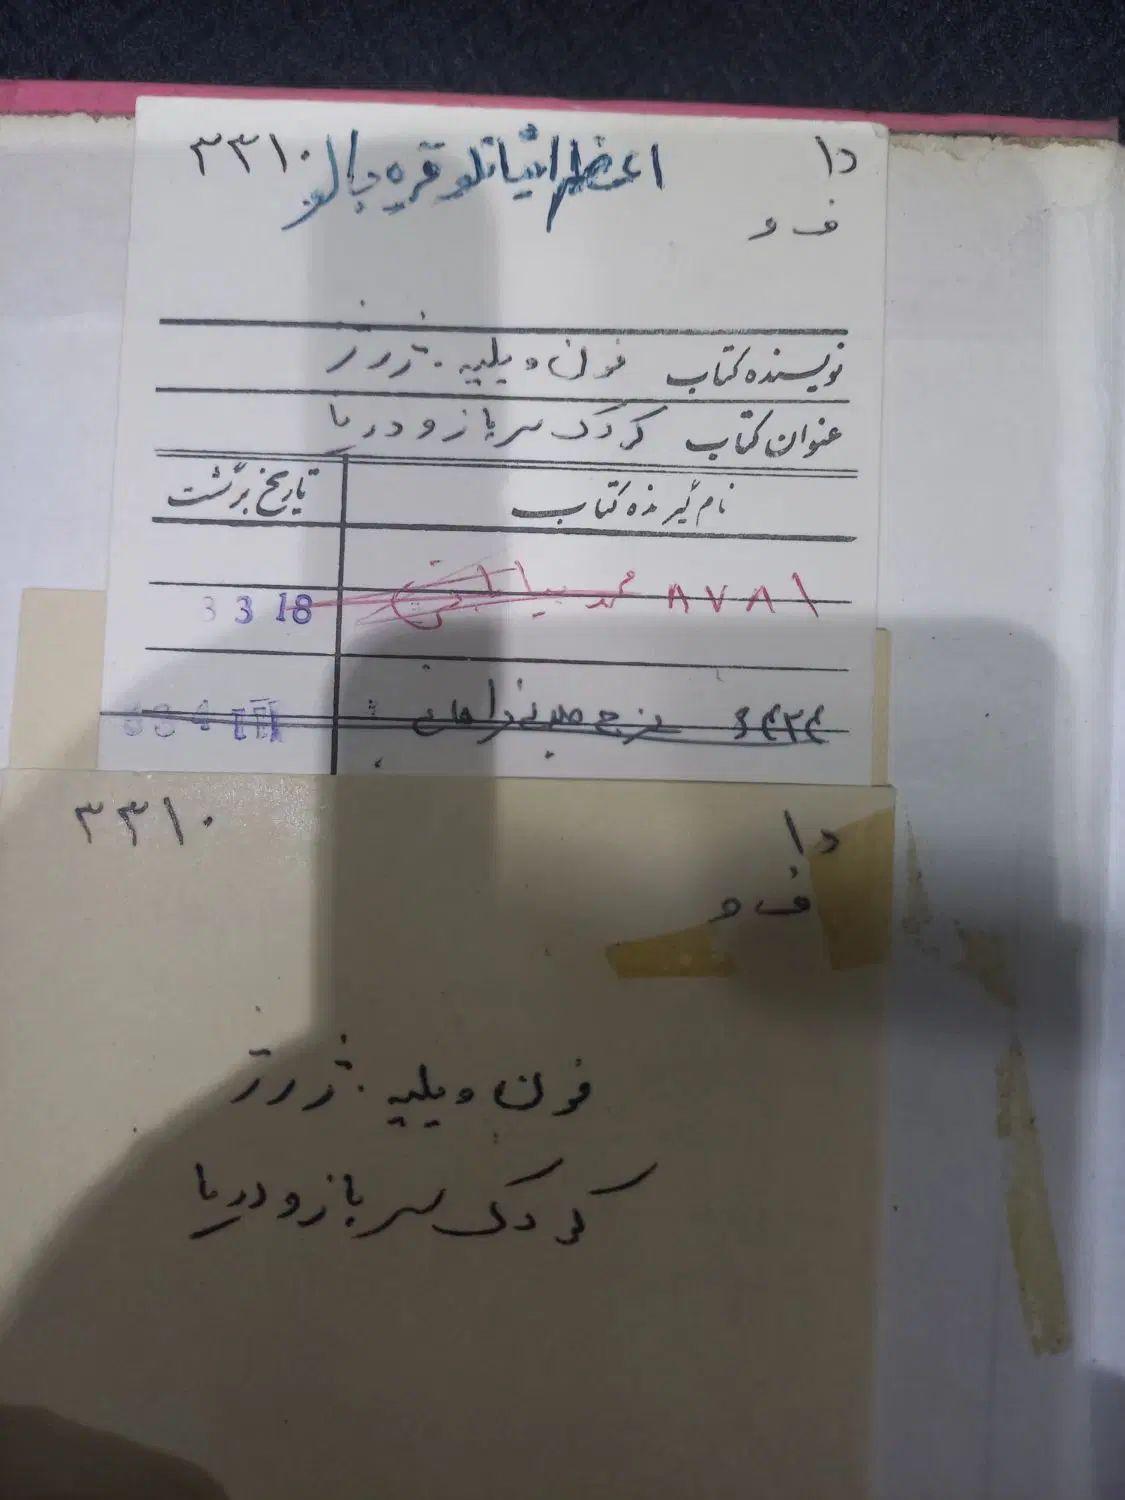 دا ۳۳۱۰
اعظم قره جالو
ف و
نویسنده کتاب فون ویلیه . ژرژ
عنوان کتاب کودک سرباز و دریا
نام گیرنده کتاب تاریخ برگشت
۸۷۸۱ محمد 3 3 18
دا ۳۳۱۰
ف و
فون ویلیه . ژرژ
کودک سرباز و دریا